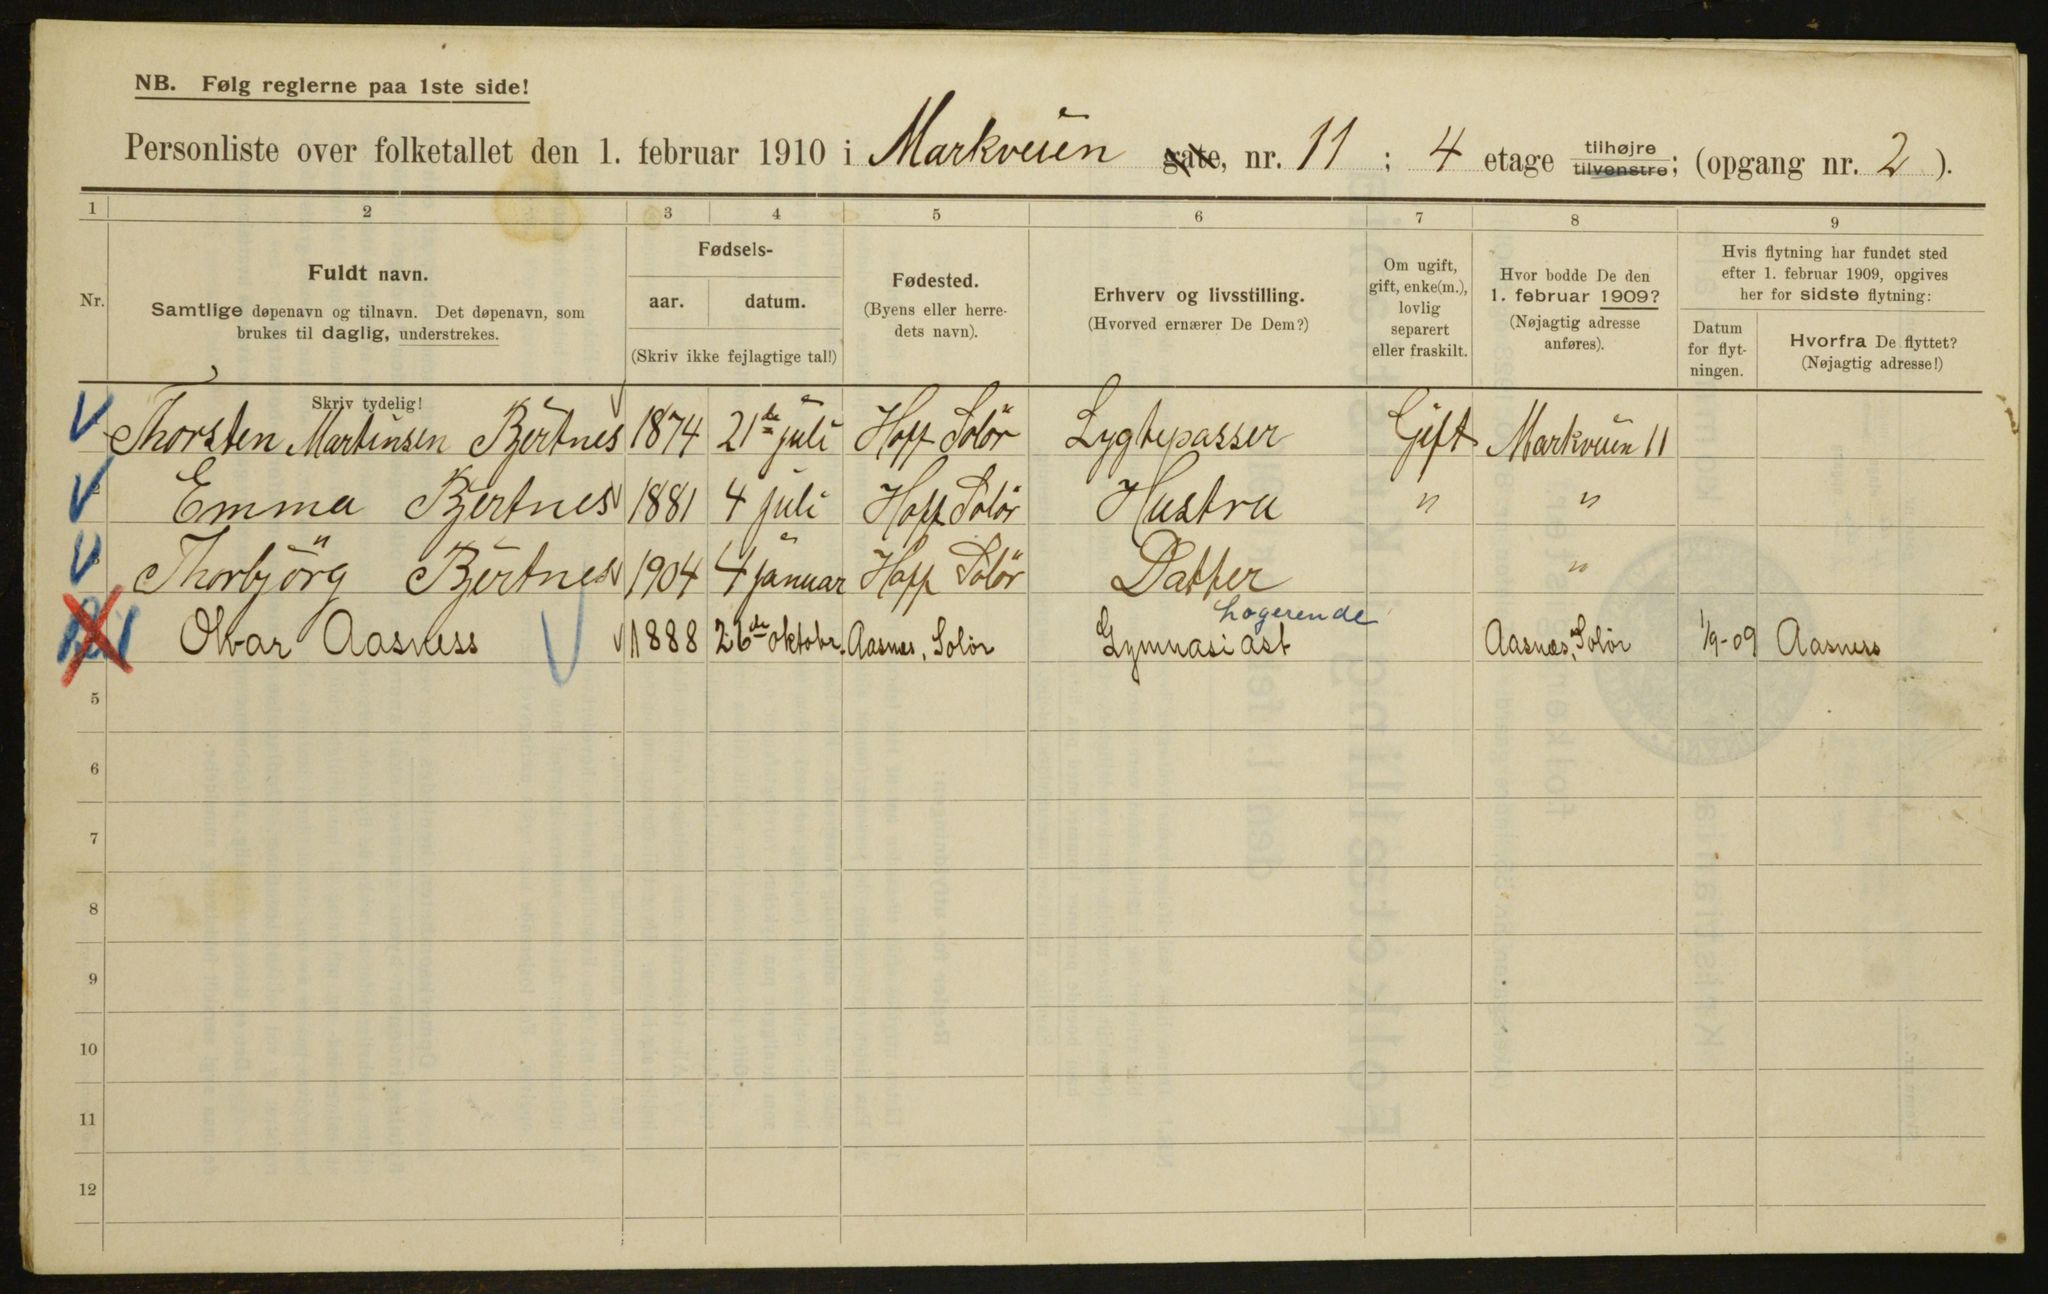 NB. Følg reglerne paa 1ste side!
Personliste over folketallet den 1. februar 1910 i Markveien gate, nr. 11 ; 4 etage tilhøjre tilvenstre; (opgang nr. 2 ).
1 2 3 4 5 6 7 8 9
Nr.
Fuldt navn.
Samtlige døpenavn og tilnavn. Det døpenavn, som
brukes til daglig, understrekes.
Skriv tydelig!
Fødsels-
aar. datum.
(Skriv ikke fejlagtige tal!)
Fødested.
(Byens eller herre-
dets navn).
Erhverv og livsstilling.
(Hvorved ernærer De Dem?)
Om ugift,
gift, enke(m.),
lovlig
separert
eller fraskilt.
Hvor bodde De den
1. februar 1909?
(Nøjagtig adresse
anføres).
Hvis flytning har fundet sted
efter 1. februar 1909, opgives
her for sidste flytning:
Datum
for flyt-
ningen.
Hvorfra De flyttet?
(Nøjagtig adresse!)
Thorsten Martinsen Bjertnes 1874 21de juli Hoff Solör Lygtepasser Gift Markveien 11
Emma Bjertnes 1881 4 juli Hoff Solör Hustru " "
Thorbjörg Bjertnes 1904 4 januar Hoff Solör Datter "
logerende
Olvar Aasness 1888 26de oktobr. Aasnes, Solör Gymnasiast Aasnæs, Solör 1/9-09 Aasness
5
6
7
8
9
10
11
12